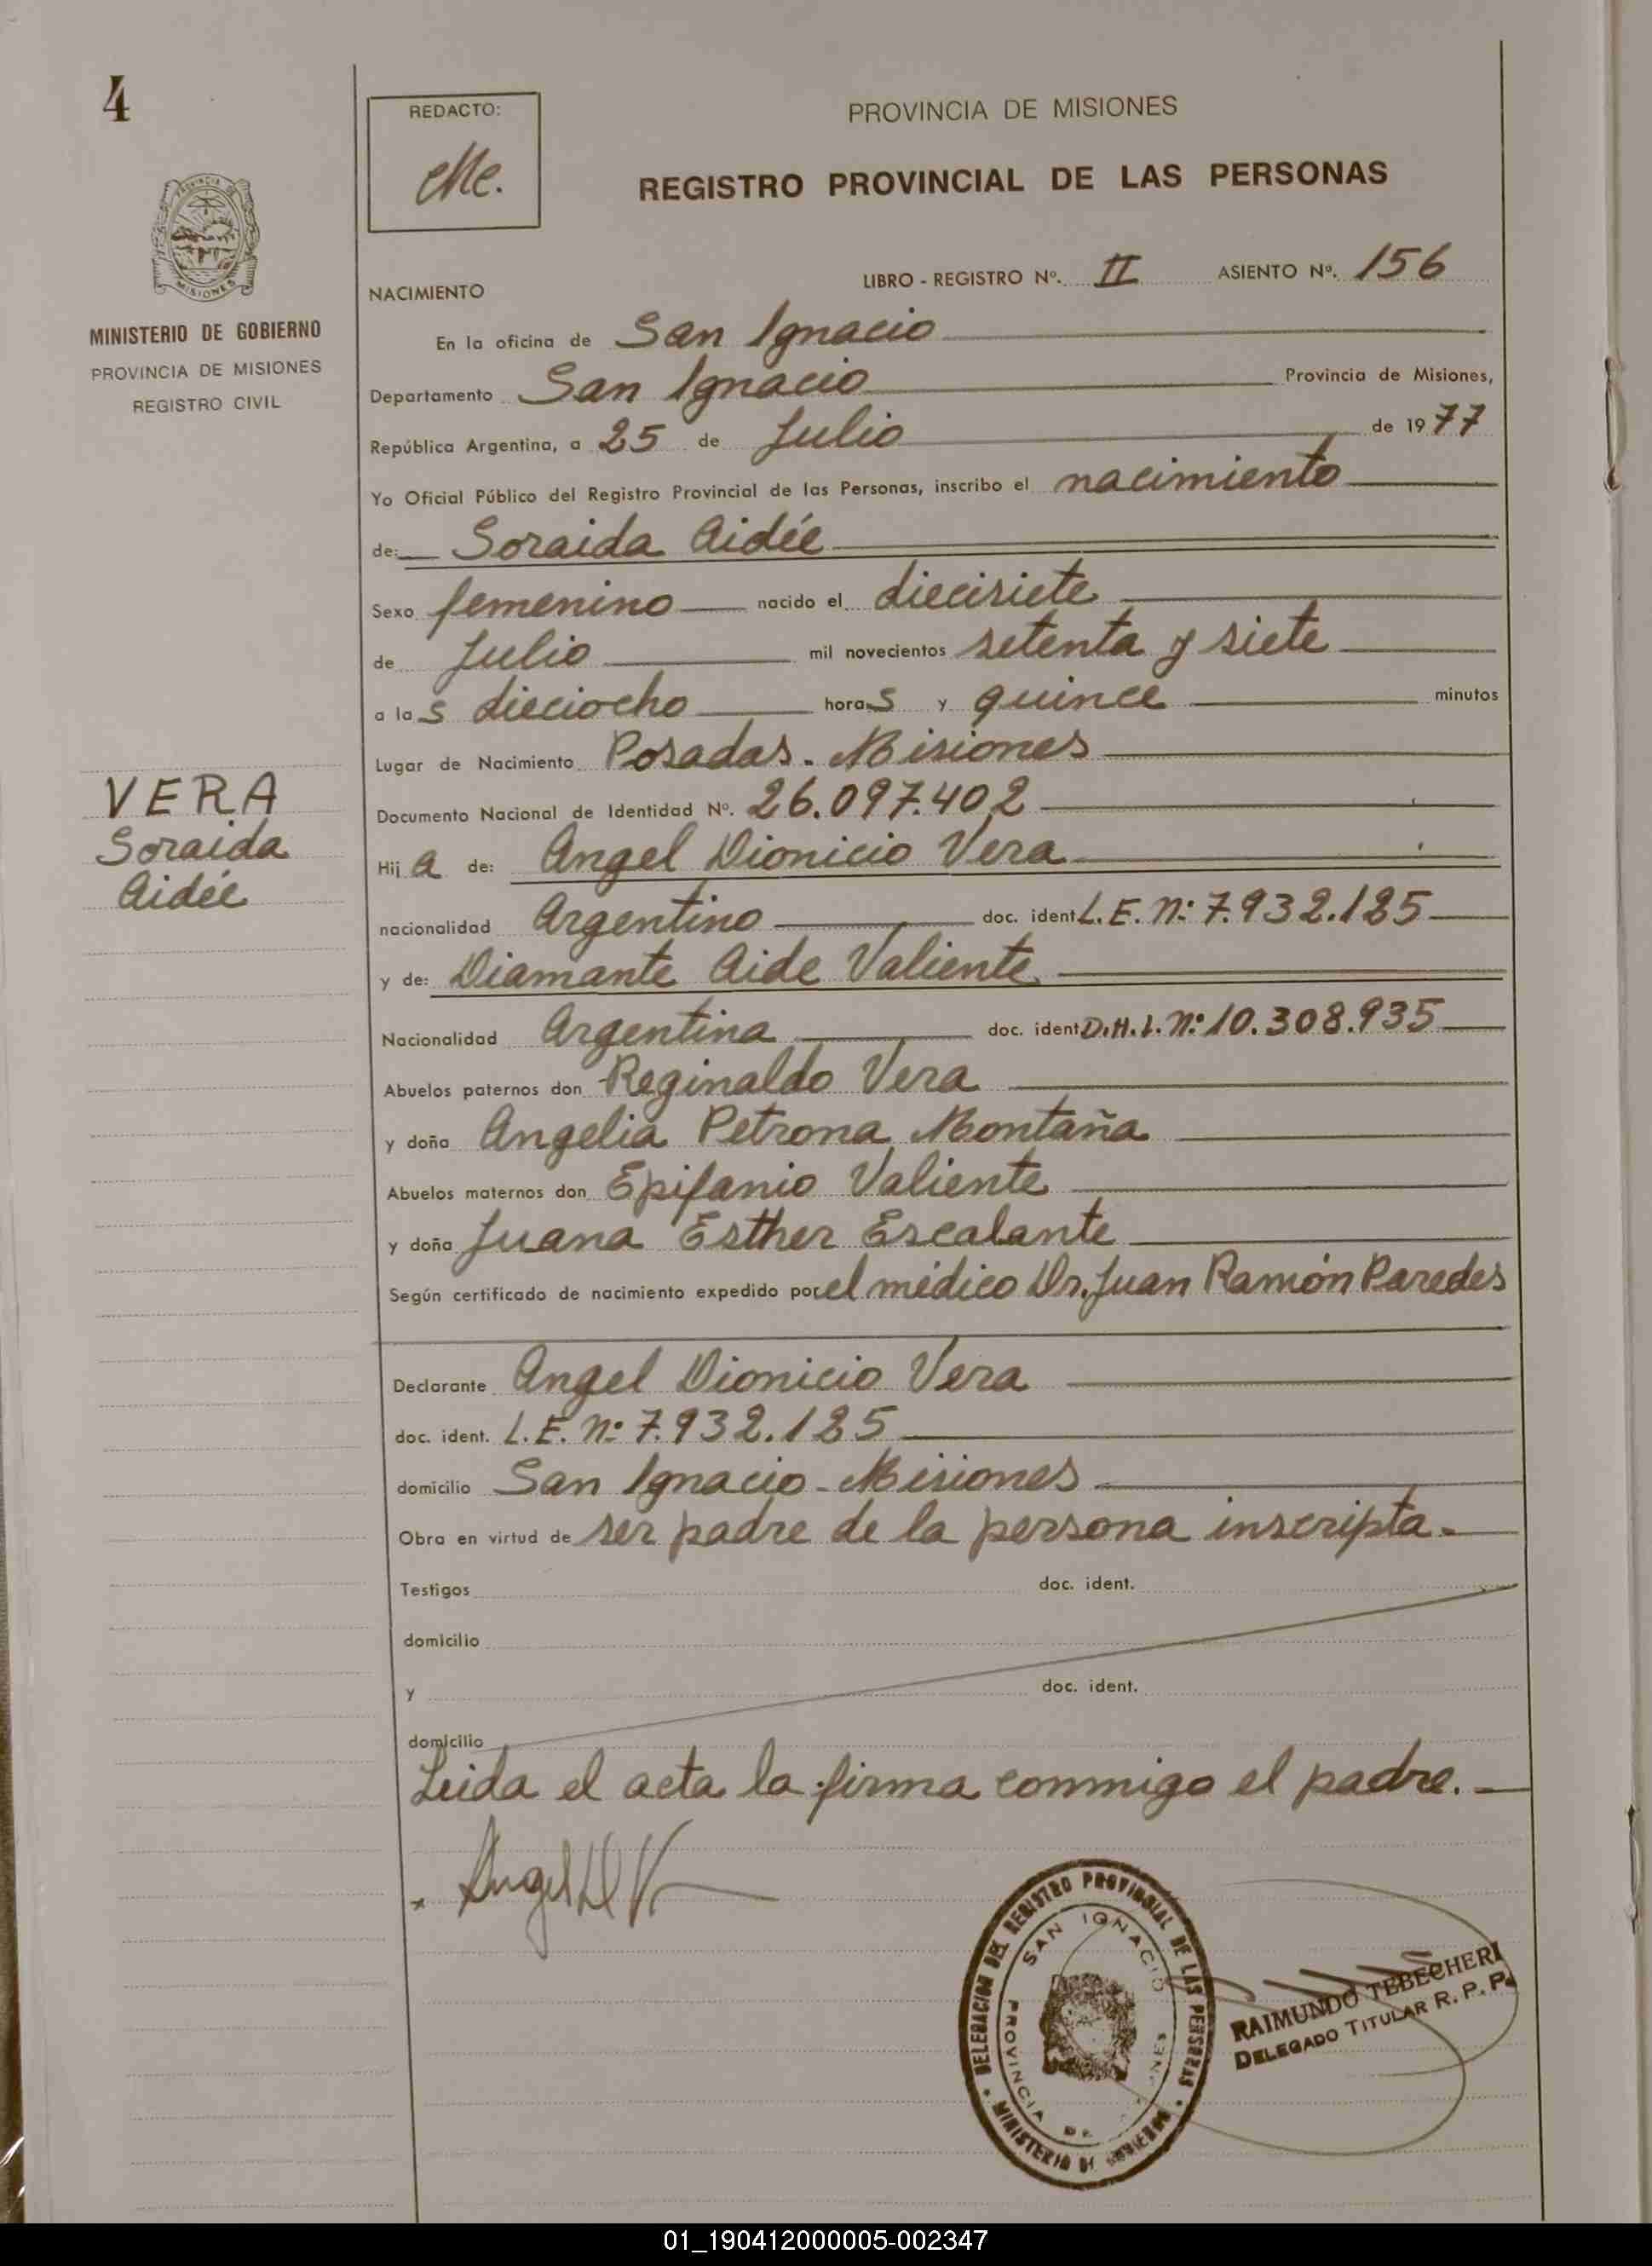 4
REDACTO:
Me.
PROVINCIA DE MISIONES
REGISTRO PROVINCIAL DE LAS PERSONAS
PROVINCIA DE
MISIONES
MINISTERIO DE GOBIERNO
PROVINCIA DE MISIONES
REGISTRO CIVIL
NACIMIENTO
LIBRO - REGISTRO Nº. II ASIENTO Nº. 156
En la oficina de San Ignacio
Departamento San Ignacio Provincia de Misiones,
República Argentina, a 25 de Julio de 1977
Yo Oficial Público del Registro Provincial de las Personas, inscribo el nacimiento
de: Soraida Aidée
Sexo femenino nacido el diecisiete
de Julio mil novecientos setenta y siete
a las dieciocho horas y quince minutos
Lugar de Nacimiento Posadas - Misiones
Documento Nacional de Identidad Nº. 26.097.402
VERA
Soraida
Aidée
Hija de: Angel Dionicio Vera
nacionalidad Argentino doc. ident. L.E. Nº: 7.932.125
y de: Diamante Aide Valiente
Nacionalidad Argentina doc. ident. D.N.I. Nº: 10.308.935
Abuelos paternos don Reginaldo Vera
y doña Angelia Petrona Montaña
Abuelos maternos don Epifanio Valiente
y doña Juana Esther Escalante
Según certificado de nacimiento expedido por el médico Dr. Juan Ramón Paredes
Declarante Angel Dionicio Vera
doc. ident. L.E. Nº: 7.932.125
domicilio San Ignacio - Misiones
Obra en virtud de ser padre de la persona inscripta.
Testigos doc. ident.
domicilio
y doc. ident.
domicilio
Leida el acta la firma conmigo el padre.
Angel D V
DELEGACION DEL REGISTRO PROVINCIAL DE LAS PERSONAS
SAN IGNACIO
PROVINCIA DE
MINISTERIO DE GOBIERNO
RAIMUNDO TEBECHERI
DELEGADO TITULAR R. P. P.
01_190412000005-002347